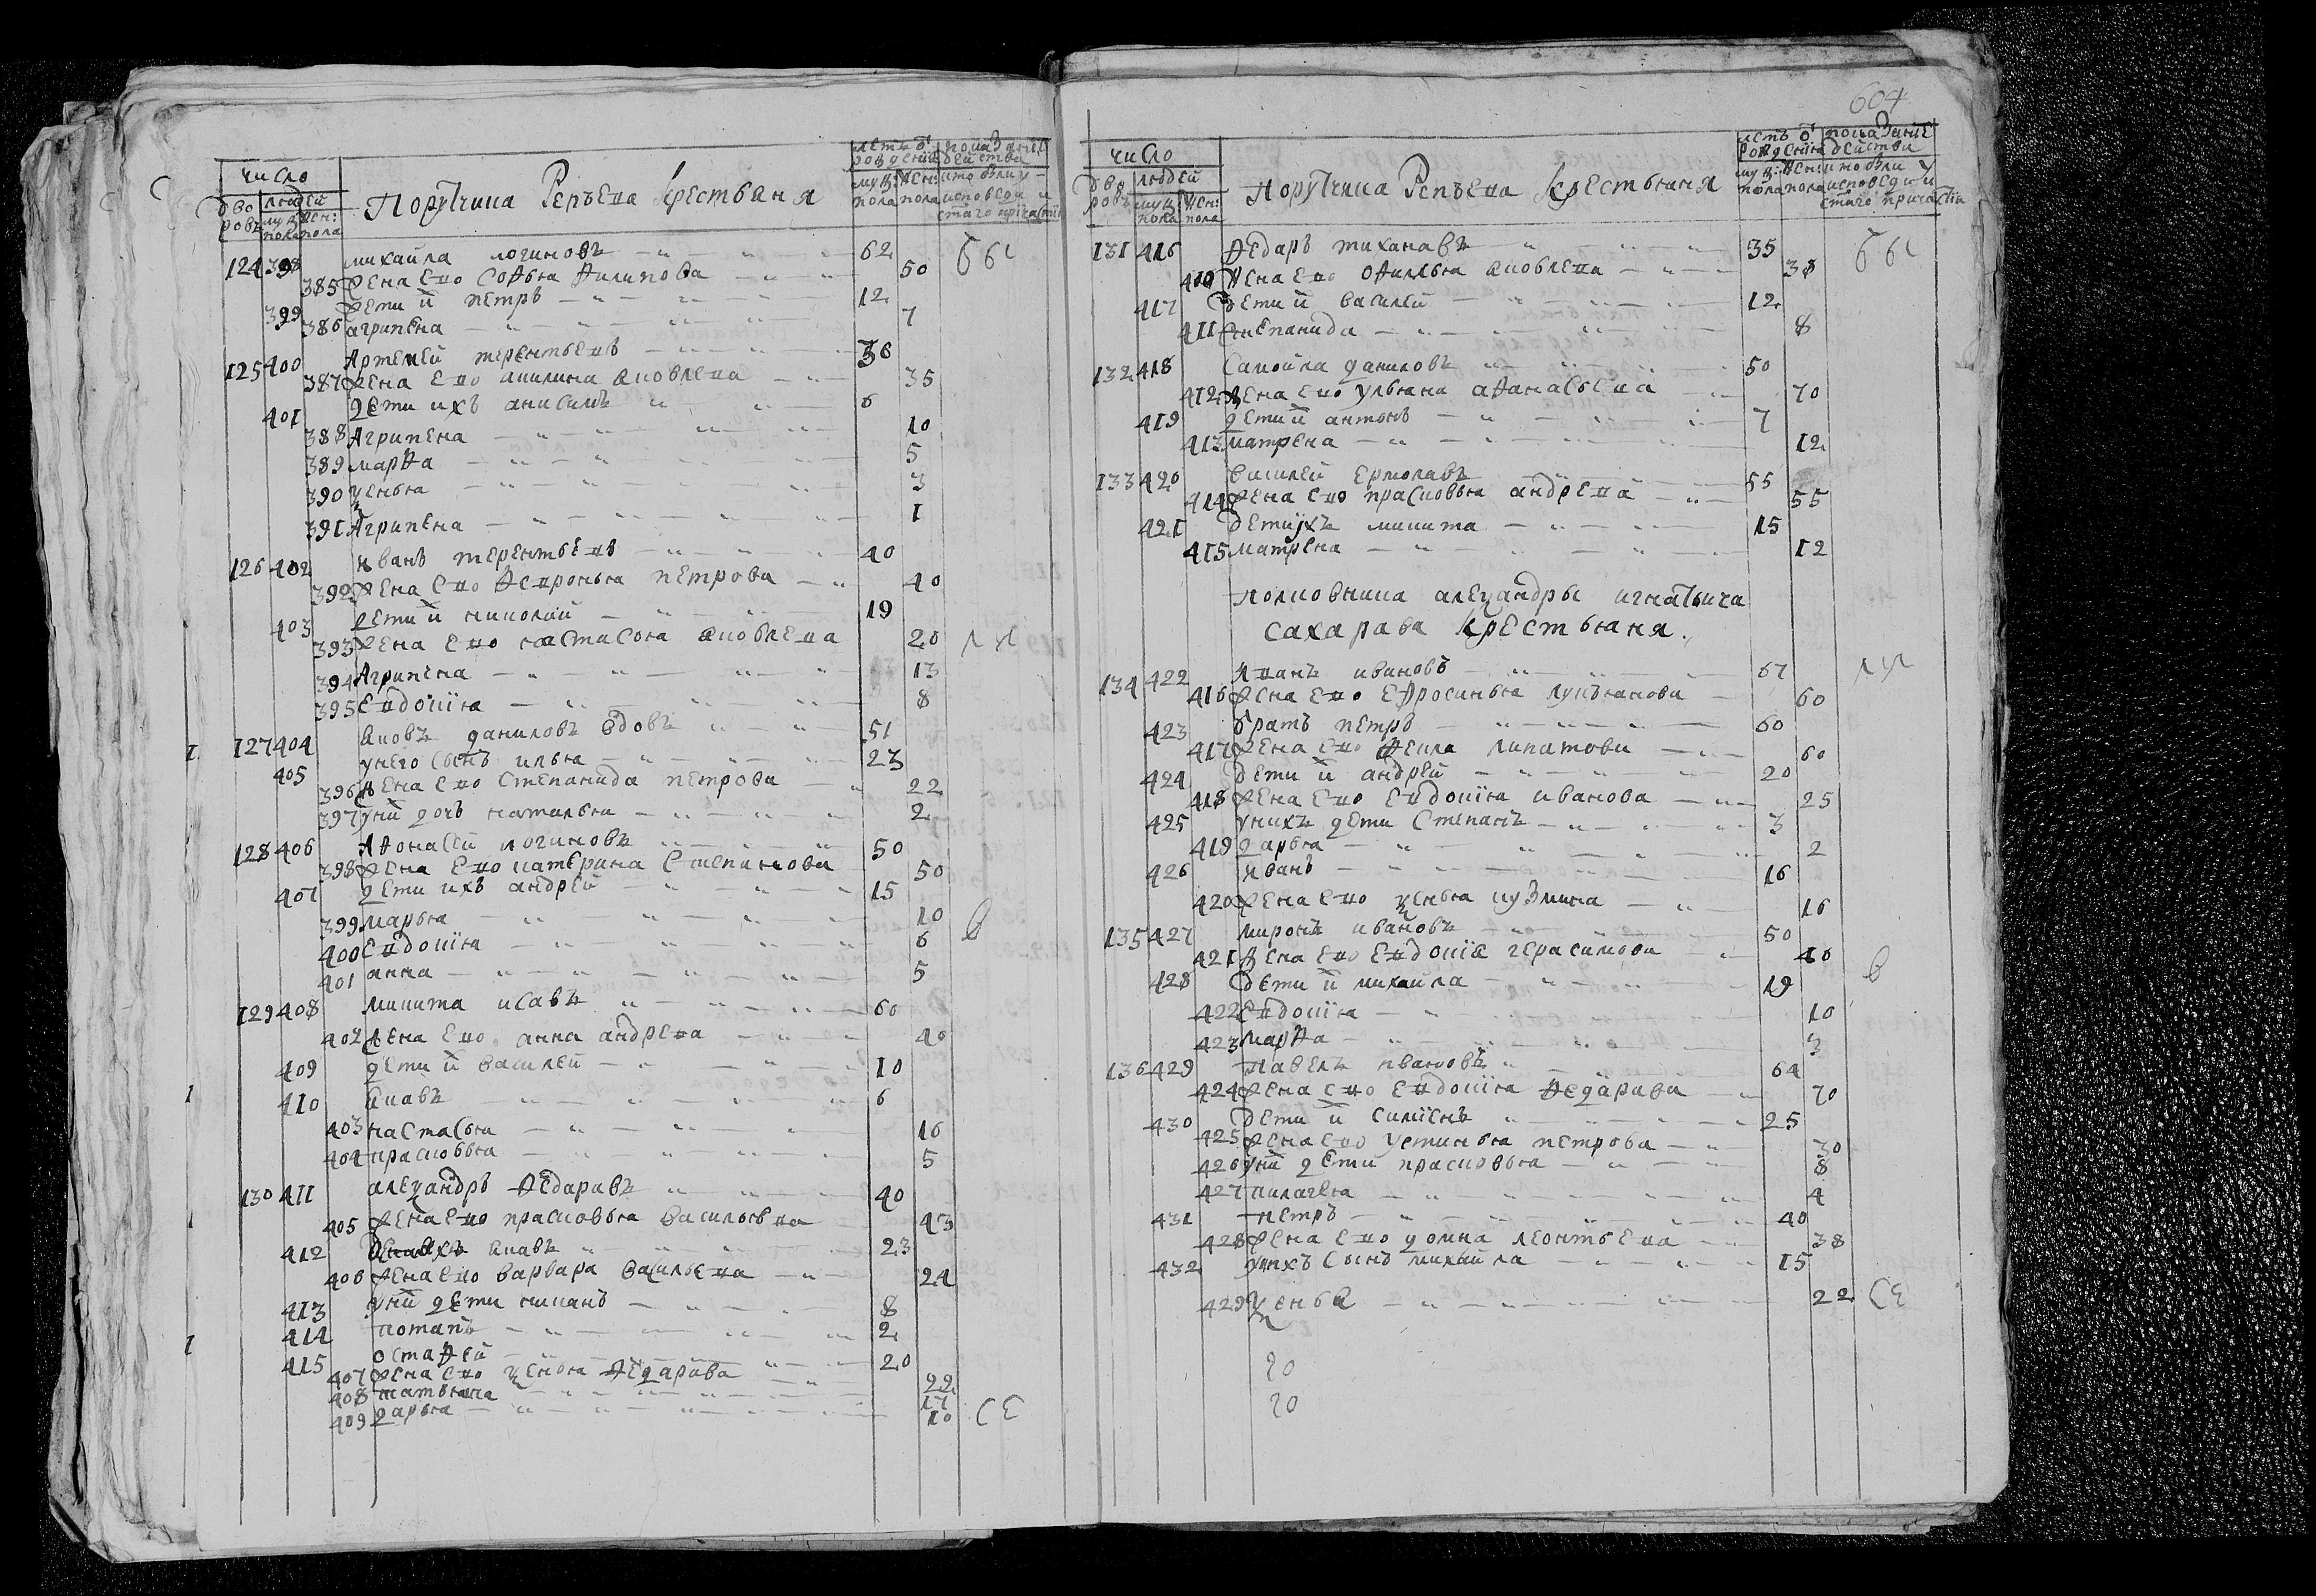 число
дво ровъ
людей
муж: пола
жен: пола
Порутчика Репъева крестьяня
летъ ѿ рождения
муж: пола
жен: пола
показание действа
кто был у исповеди и стаго причастия
124 398 михайла логиновъ 62
385 жена ево софья филипова 50
399 дети й петръ 12
386 агрипена 7
125 400 Артемей терентьевъ 36
387 жена ево акилина яковлева 35
401 дети ихъ анисимъ 6
388 Агрипена 10
389 марфа 5
390 ксенья 3
391 Агрипена 1
126 402 иванъ терентьевъ 40
392 жена ево февронья петрова 40
403 дети й николай 19
393 жена ево настасья яковлева 20
394 Агрипена 13
395 Евдокия 8
1 127 404 яковъ даниловъ вдовъ 51
405 унего сынъ илья 23
396 жена ево степанида петрова 22
397 уний дочь наталья 2
128 406 Афонасей логиновъ 50
398 жена ево катерина степанова 50
407 дети ихъ андрей 15
399 марья 10
400 Евдокия 6
401 анна 5
129 408 микита исавъ 60
402 жена ево анна андрева 40
409 дети й василей 10
1 410 яковъ 6
403 настасья 16
404 прасковья 5
130 411 алеѯандръ федаравъ 40
405 жена ево прасковья васильевна 43
412 яковъ 23
406 жена ево варвара васильева 24
413 уний дети 8
1 414 потапъ 2
415 остафей 20
407 жена ево ѯенья федарава 22
408 татьяна 17
409 дарья 10

604
число
дво ровъ
людей
муж: пола
жен: пола
порутчика Репъева крестьяня
летъ ѿ рождения
муж: пола
жен: пола
показание действа
кто были у исповеди й стаго причастия
131 416 федаръ тихановъ 35
410 жена ево офимья яковлева 38
417 дети й василей 12
411 степанида 8
132 418 самойла даниловъ 50
412 жена ево ульяна афанасьева 70
419 дети й антонъ 7
413 матрена 12
133 420 василей ермолавъ 55
414 жена ево прасковья андрева 55
421 дети ихъ микита 15
415 матрена 12
полковника алеѯандры игнатьича
сахарава крестьяня.
134 422 ивановъ 67
416 жена ево Ефросинья лукъянова 60
423 братъ петръ 60
417 жена ево фекла липатова 60
424 дети й андрей 20
418 жена ево Евдокия иванова 25
425 унихъ дети степанъ 3
419 дарья 2
426 иванъ 16
420 жена ево ѯенья кузмина 16
135 427 миронъ ивановъ 50
421 жена ево Евдокия герасимова 40
428 дети й михайла 19
422 Евдокия 10
423 марфа 3
136 429 павелъ ивановъ 64
424 жена ево Евдокия федарава 70
430 дети й симионъ 25
425 жена ево устинья петрова 30
426 уний дети прасковья 8
427 пилагея 4
431 петръ 40
428 жена ево домна леонтьева 38
432 унихъ сынъ михайла 15
429 ѯенья 22